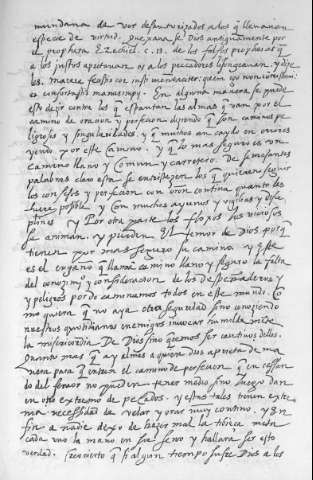 mundana de ver desautorizados a los q̃ llamauan
especie de virtud. Quexaua se Dios antiguamente por
el propheta Ezechiel. c. 13. de los falsos prophetas q̃
a los justos apretauan y a los peccadores lisongeauan. y dize
les. Maerere fecistis cor iusti mendaciter: quem ego non contristaui:
et confortastis manus impij. En alguna manera se puede
esto dezir contra los q̃ espantan las almas q̃ van por el
camino de oracion y perfecion diziendo q̃ son caminos pe
ligrosos y singularidades, y q̃ muchos an caydo en errores
yendo por este camino. y q̃ lo mas seguro es un
camino llano y comun y carretero. De semejantes
palabras claro esta se entristezen los q̃ quieren seguir
los consejos y perfecion con oron continua quanto les
fuere posible. y con muchos ayunos y vigilias y disci
plinas y Por otra parte los flojos los viciosos
se animan. y pierden El temor de Dios porq̃
tienen por mas seguro su camino. y Este
es el engaño q̃ llamã camino llano y seguro la falta
del conoçimiº y consideracion de los despeñaderos
y peligros por do caminamos todos en este mundo. Co
mo quiera q̃ no aya otra seguridad sino conociendo
nuestros quotidianos enemigos inuocar humilde mente
la misericordia De Dios sino queremos ser cautiuos dellos.
Quanto mas q̃ ay almas a quien dios aprieta de ma
nera para q̃ entren el camino de perfecion q̃ en cessan
do del feruor no pueden tener medio sino luego dan
en otro extremo de peccados. y estas tales tienen extre
ma necessidad de velar y orar muy contino. y En
fin a nadie dexo de hazer mal la tibieza meta
cada uno la mano en su seno y hallara ser esto
verdad. Creo cierto q̃ si algun tiempo sufre Dios a los